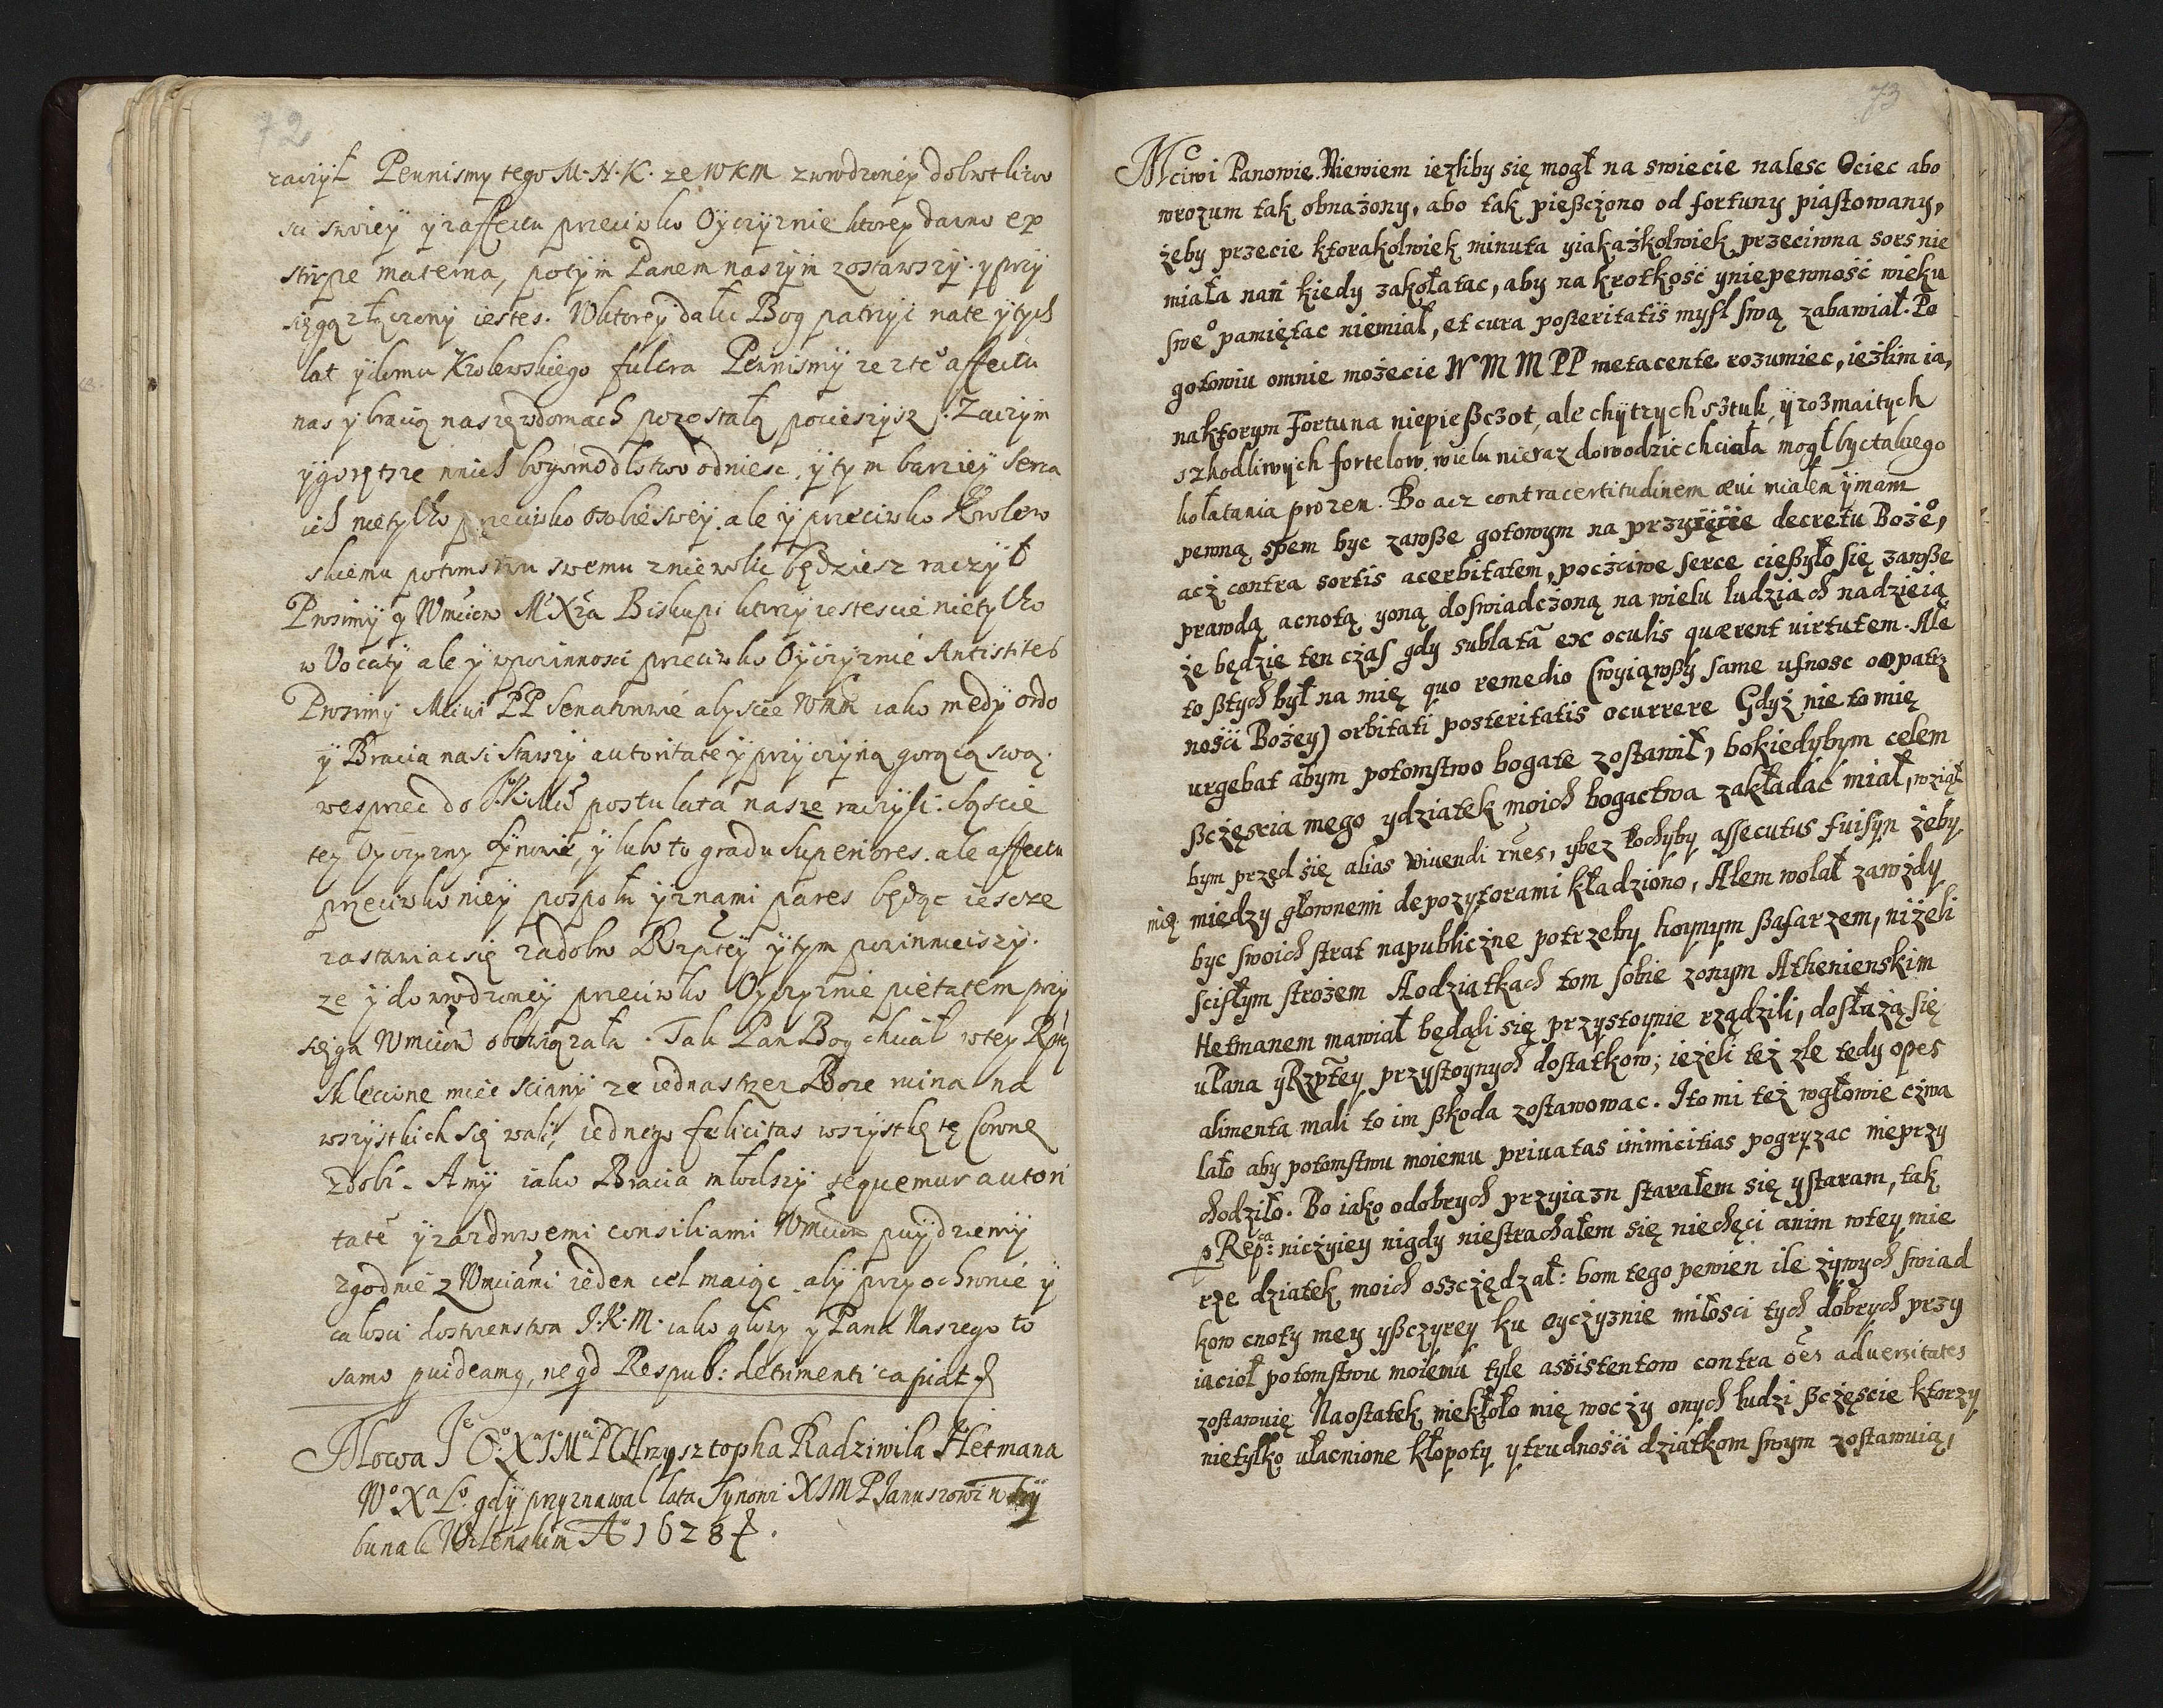 72
raczył Pewnismy tego M. N. K. ze WKM z wrodzoney dobrotliwo
sci swoiey y z affectu przeciwko Oyczyznie ktorey dawno ex
stirpe materna, potym Panem naszym zostawszy y przy
sięgą złączony iestes. W ktorey dali Bog patrzyc na te y tych
lat y domu Krolewskiego fulcra Pewnismy ze z te° affectu
nas y bracią naszę w domach pozostałą pocieszysz. Zaczym
y gorętsze w nich bogomodlstwo odniesc, y tym barziey serca
ich nie tylko przeciwko osobie swey ale y przeciwko Krolew
skiemu potomstwu swemu zniewolic będziesz raczył
Prosimy y Wmciow M Xża Biskupi ktorzy iestescie nie tylko
w Vocaty ale y w powinnosci przeciwko Oyczyznie Antistites
Prosimy Mciwi PP Senatorowie abyscie WMM iako medy ordo
y Bracia nasi starszy autoritate y przyczyną gorącą swą
wesprzec do JKMci postulata nasze raczyli. Esscie
tey Oyczyzny synowie, y lubo to gradu superiores. ale affectu
przeciwko niey pospołu y z nami pares będąc ieszcze
zastawiac się za dobro Rzptey y tym powinnieiszy.
ze y do wrodzoney przeciwko Oyczyznie pietatem przy
sięga Wmciow obowiązała. Tak Pan Bog chciał w tey Rptey
sklecione miec sciany ze iedna strzez Boze ruina na
wszystkich się wali, iednego felicitas wszystkę tę Coronę
zdobi. A my iako Bracia młodszy sequemur autori
tatē y za zdrowemi consiliami Wmciow puydziemy
zgodnie z Wmciami ieden cel maiąc aby przy ochronie y
całosci dostoienstwa J.K.M. iako głowy y Pana Naszego to
samo puideamq, neqd Respub: detrimenti capiat.
Mowa Je° O° X° JM Pa CHrzysztopha Radziwila Hetmana
W° Xa L° gdy przyznawal lata synowi XJMP Januszowi w try
bunale Wilenskim A° 1628.
73
Mciwi Panowie. Niewiem iezliby się mogł na swiecie nalesc Ociec abo
w rozum tak obnażony, abo tak pießczono od fortuny piastowany,
żeby przecie ktorakolwiek minuta yiakażkolwiek przeciwna sors nie
miała nań kiedy zakołatac, aby na krotkość y niepewność wieku
swe° pamiętac niemiał, et cura posteritatis mysl swą zabawiał. Po
gotowiu omnie możecie W M M PP me tacente rozumiec, ieżlim ia,
na ktorym Fortuna niepießczot, ale chytrych sztuk, y rozmaitych
szkodliwych fortelow, wielu nieraz dowodzic chciała mogł byc takiego
kołatania prozen. Bo acz contra certitudinem ævi miałem y mam
pewną spem byc zawsze gotowym na przyięcie decretu Boże°,
acż contra sortis acerbitatem, poczciwe serce cießyło się zawße
prawdą a cnotą y oną doswiadczoną na wielu ludziach nadzieią
że będzie ten czas gdy sublatā ex oculis quærent virtutem. Ale
to ßtych był na mię quo remedio (wyiąwßy same ufnosc o opatrz
nosci Bożey) orbitati posteritatis ocurrere Gdyż nie to mię
urgebat abym potomstwo bogate zostawił, bo kiedybym celem
ßczęscia mego y dziatek moich bogactwa zakładac miał, wziął
bym przed się alias vivendi rñes, y bez łochyby assecutus fuisẏn żeby
mię miedzy głownemi depozytorami kładziono, Alem wolał zawżdy
byc swoich strat na publiczne potrzeby hoynym ßafarzem, niżeli
scisłym strożem A o dziatkach tom sobie z onym Athenienskim
Hetmanem mawiał będąli się przystoynie rządzili, dosłużą się
u Pana y Rzptey przystoynych dostatkow; ieżeli też zle tedy opes
alimenta mali to im ßkoda zostawowac. I to mi też w głowie czwa
lało aby potomstwu moiemu privatas inimicitias pogryzac nieprzy
chodziło. Bo iako o dobrych przyiazn starałem się y staram, tak
p Repca: niczyiey nigdy niestrachałem się niechęci anim w tey mie
rze dziatek moich oszczędzał: bom tego pewien ile żywych swiad
kow cnoty mey yßczyrey ku oyczyznie miłosci tych dobrych przy
iacioł potomstwu moiemu tyle assistentow contra oēs adversitates
zostawuię Naostatek niekłoło mię w oczy onych ludzi ßczęscie ktorzy
nietylko ułacnione kłopoty y trudnosci dziatkom swym zostawuią,